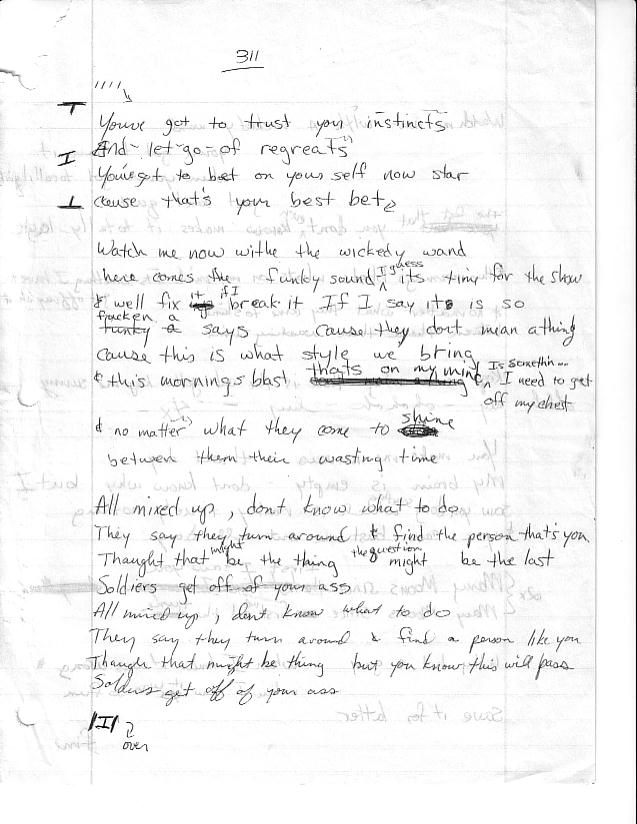 311
You've got to trust your instincts
And let go of regreats
You've got to bet on your self now star
cause that's your best bet
Watch me now withe the wickedy wand
here comes the funky sound I guess its time for the show
& well fix it if I break it If I say it is so
fracken a says cause they dont mean a thing
funky a
cause this is what style we bring
& this mornings blast thats on my mind Is somethin... I need to get
off my chest
& no matter what they come to shine
between them their wasting time
All mixed up, dont know what to do
They say they turn around & find the person that's you
Thought that might be the thing the question might be the last
Soldiers get off of your ass
All mixed up, dont know what to do
They say they turn around & find a person like you
Though that might be thing but you know this will pass
Soldiers get off of your ass
over